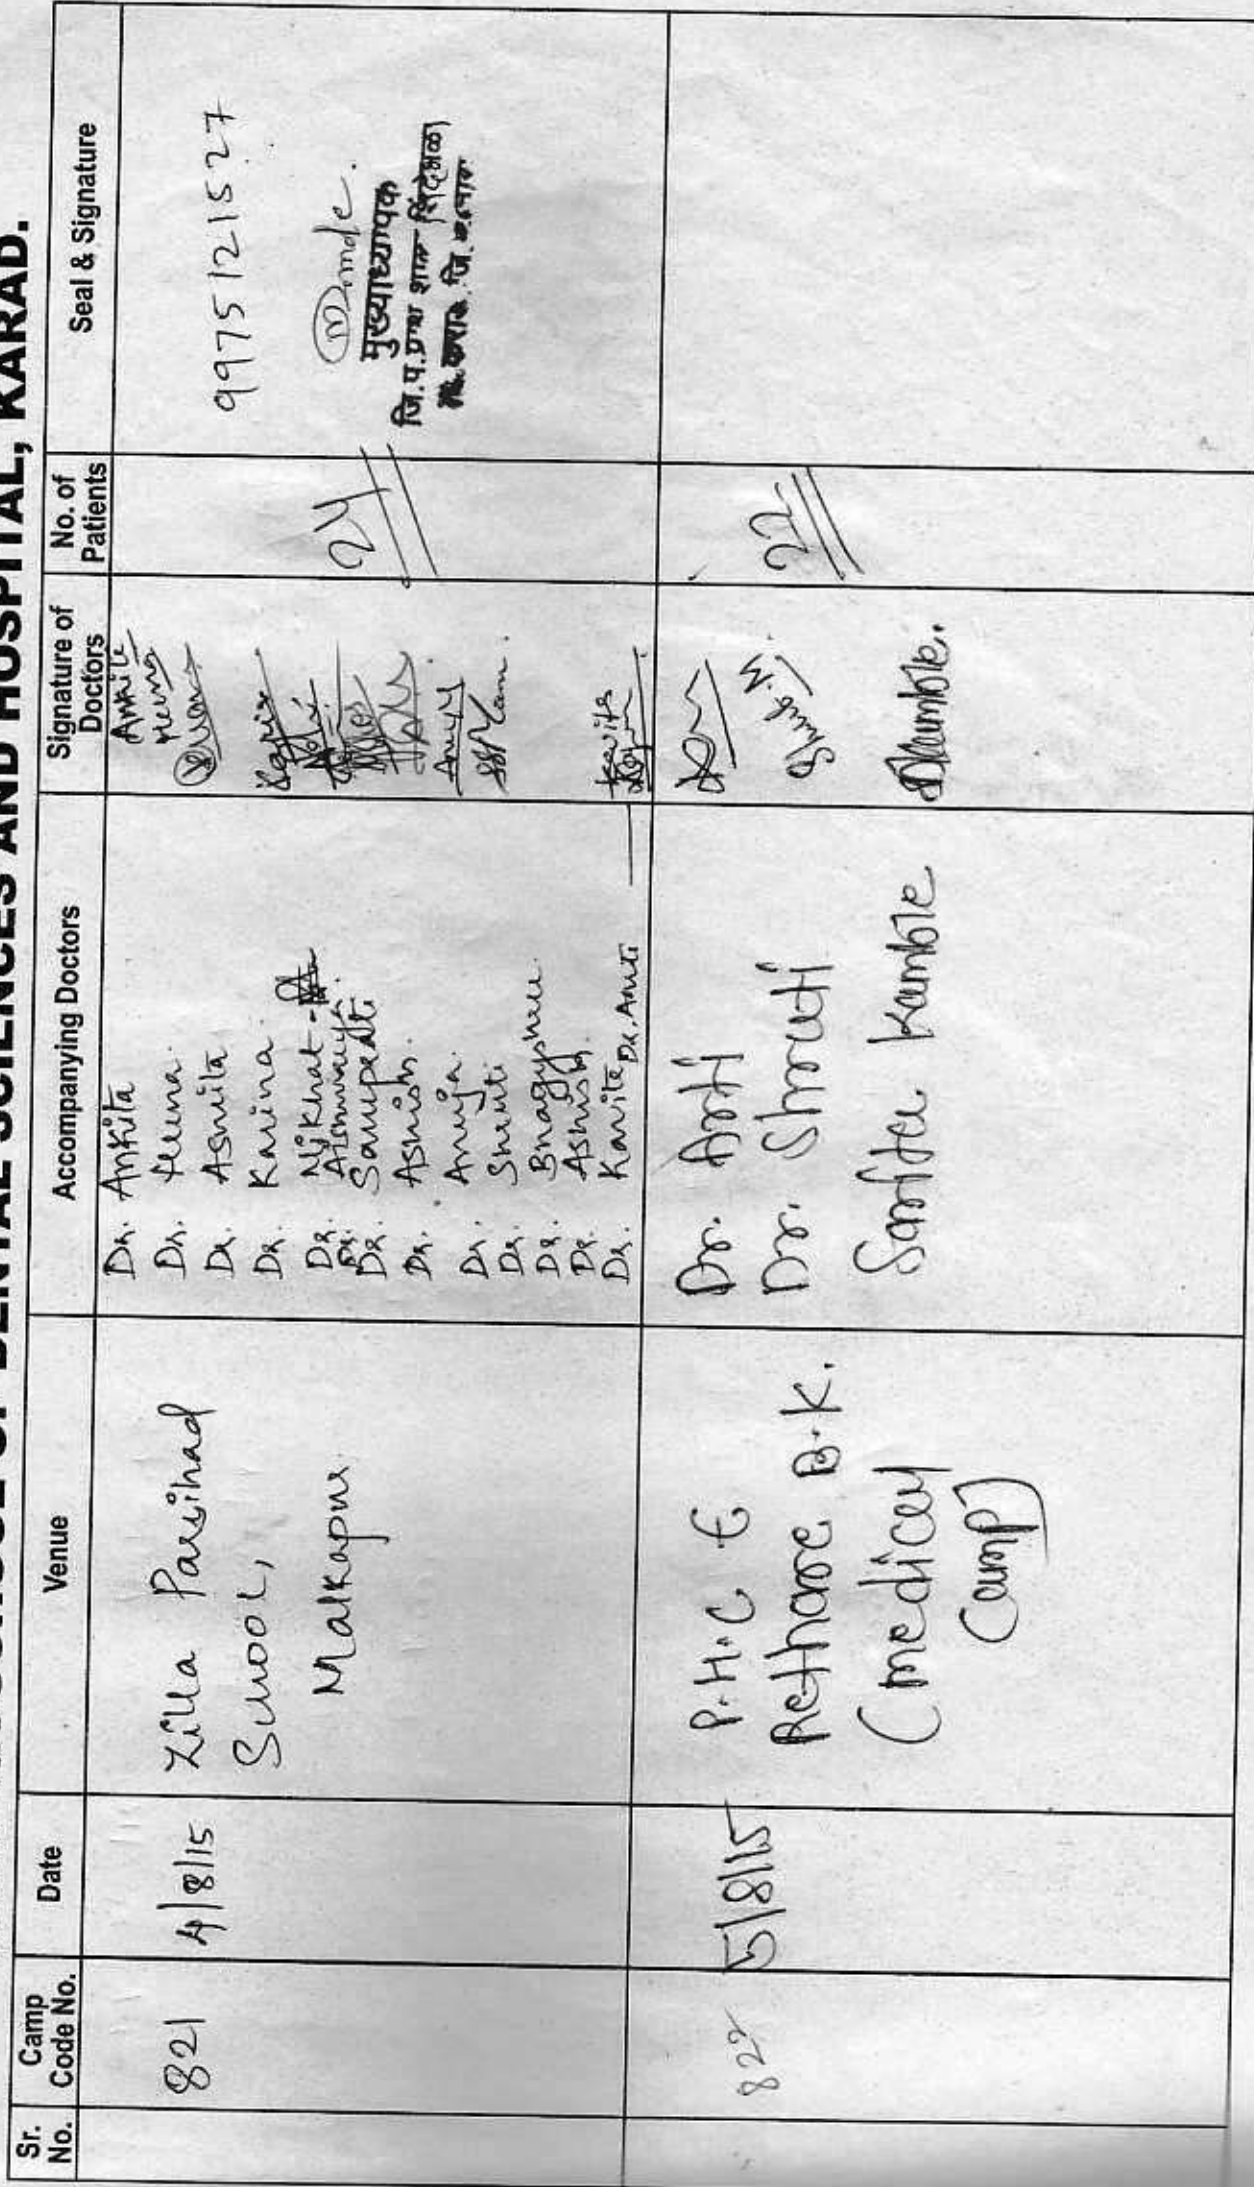 OF DENTAL SCIENCES AND HOSPITAL, KARAD.
Sr. No.
Camp Code No.
Date
Venue
Accompanying Doctors
Signature of Doctors
No. of Patients
Seal & Signature
821
4/8/15
Zilla Parishad
School,
Malkapur
Dr. Ankita
Dr. Heena.
Dr. Asmita
Dr. Karina.
Dr. Nikhat -
Dr. Aishwarya.
Dr. Sampada
Dr. Ashish.
Dr. Anuja.
Dr. Shruti
Dr. Bhagyshree.
Dr. Ashish.
Dr. Kavita Dr. Amrti
Ankita
Heena
Anuja
Kavita
24
9975121527
मुख्याध्यापक
जि.प.प्राथ शाळा
822
5/8/15
P.H.C
Rethare B.K.
(medical
camp)
Dr. Arti
Dr. Shruti
Sarita Kamble
Shrub.M.
SKamble..
22